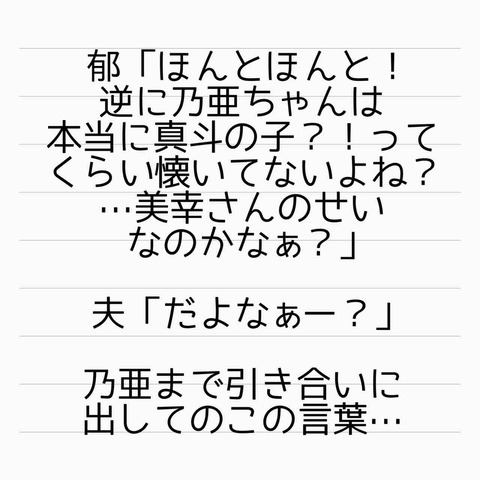 郁「ほんとほんと！
逆に乃亜ちゃんは
本当に真斗の子？！って
くらい懐いてないよね？
…美幸さんのせい
なのかなぁ？」
夫「だよなぁー？」
乃亜まで引き合いに
出してのこの言葉…